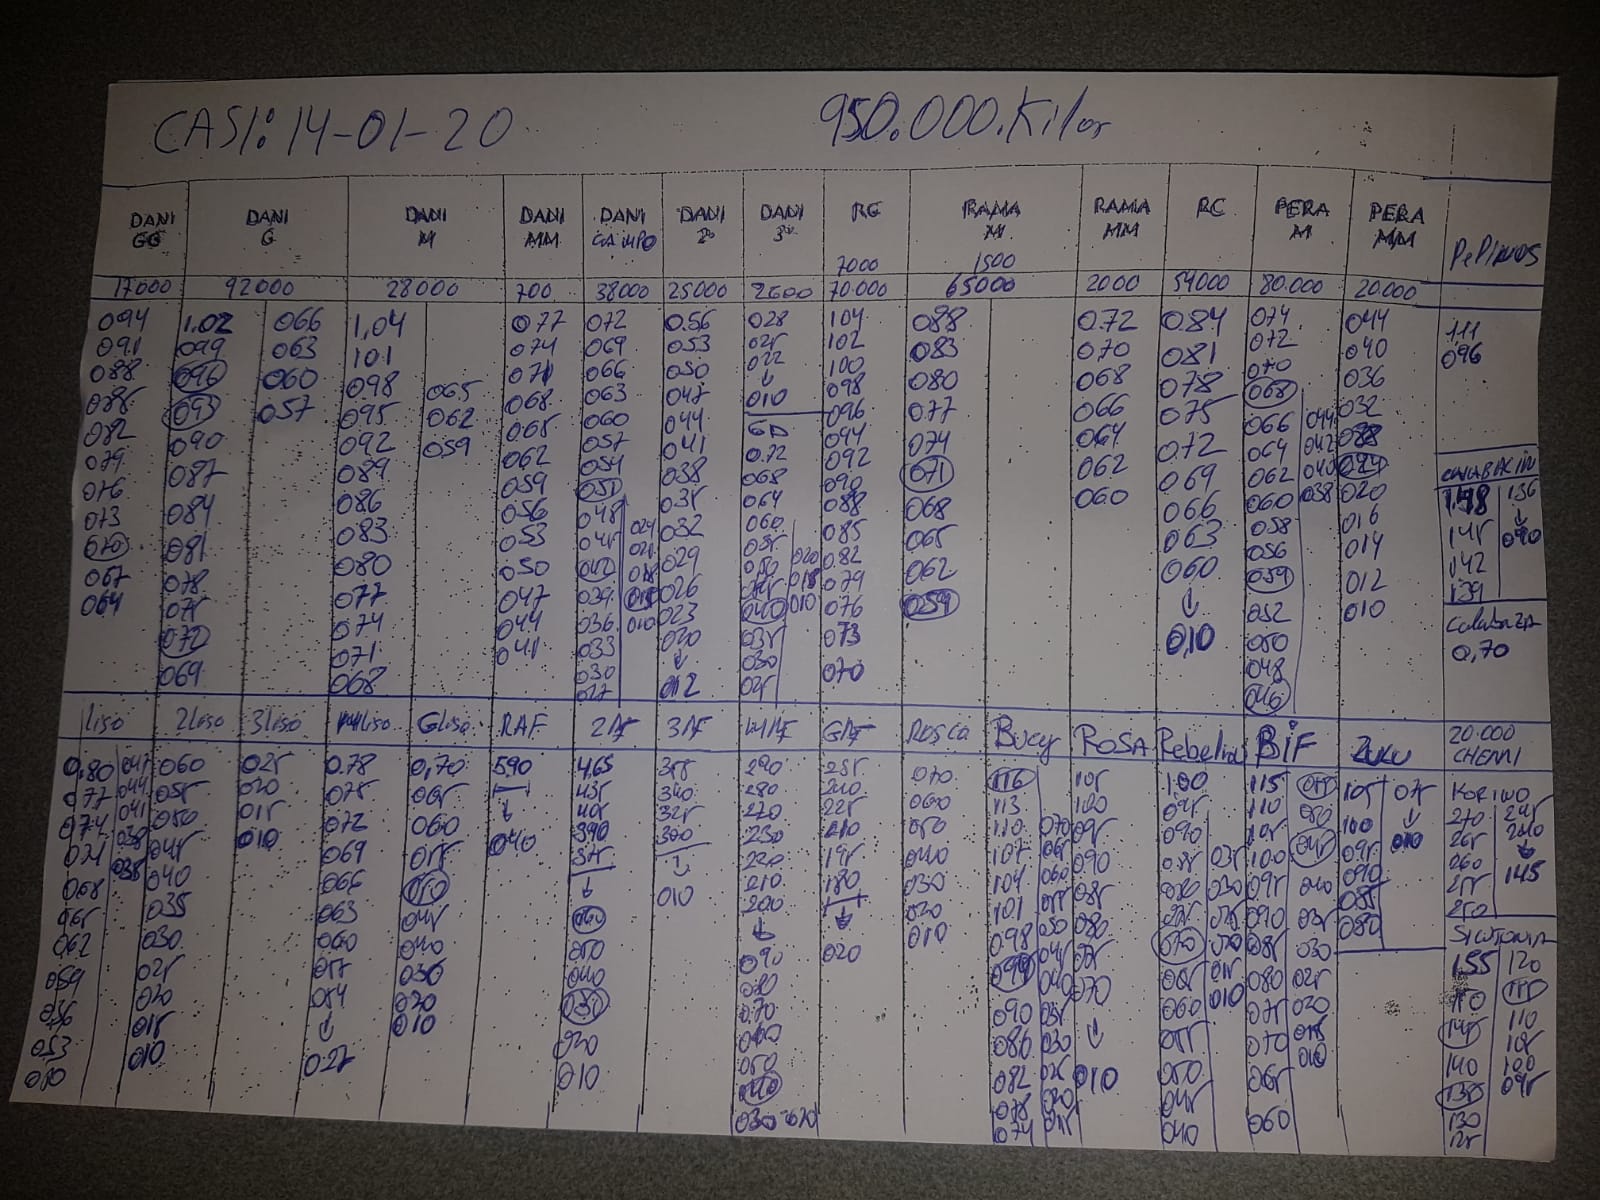 CASI: 14-01-20 950.000.Kilos
DANI GG DANI G DANI M DANI MM DANI CAMPO DANI 2ª DANI 3ª RG RAMA M RAMA MM RC PERA M PERA MM PEPINOS
7000 1500
17000 92000 28000 700 38000 25000 2600 70.000 65000 2000 54000 80.000 20.000
094 1,02 066 1,04 077 072 0.56 028 104 088 0.72 0.84 074 044 111
091 099 063 101 074 069 053 025 102 083 070 081 072 040 096
088 096 060 098 065 071 066 050 022 100 080 068 078 070 036
085 093 057 095 062 068 063 047 010 098 077 066 075 068 032
082 090 092 059 065 060 044 GD 096 074 064 072 066 044
079 087 089 062 057 041 0.72 094 071 062 069 064 042 024 CALABACIN
076 084 086 059 054 038 068 092 068 060 066 062 040 020 1.48 136
073 081 083 056 051 035 064 090 065 063 060 038 016 145 090
070 078 080 053 048 024 032 060 088 062 060 058 014 142
067 075 077 050 045 021 029 055 020 085 059 010 056 012 139
064 072 074 047 042 018 026 050 018 082 054 010 Calabaza
069 071 044 039 015 023 045 010 079 052 0,70
068 041 036 010 020 040 076 050
033 012 035 073 048
030 030 070 046
027 025
1Liso 2Liso 3Liso MLiso GLiso RAF 2RF 3RF MRF GRF ROSCA Bucy ROSA Rebelina BIF ZUKU 20.000 CHERRI
0,80 047 060 025 0.78 0,70 590 465 355 290 255 070 116 105 100 115 055 105 075 KOKINO
077 044 055 020 075 065 040 435 340 280 240 060 113 100 095 110 050 100 010 270 245
074 041 050 015 072 060 405 325 270 225 050 110 070 095 090 105 045 095 265 240
071 038 045 010 069 055 390 300 230 210 040 107 065 090 085 035 100 040 090 260 145
068 035 040 066 050 375 010 220 195 030 104 060 085 080 030 095 035 085 255
065 035 063 045 060 210 180 020 101 055 080 075 025 090 030 080 250
062 030 060 040 050 200 020 010 098 050 075 070 020 085 025 SINTONIA
059 025 057 030 040 090 094 045 070 065 015 080 020 155 120
056 020 054 020 030 080 090 040 010 060 010 075 015 150 115
053 015 027 010 020 0.70 086 035 055 070 010 145 110
050 010 010 060 082 030 050 065 140 105
050 078 025 045 060 135 100
040 074 020 040 130 095
030-020 015 125